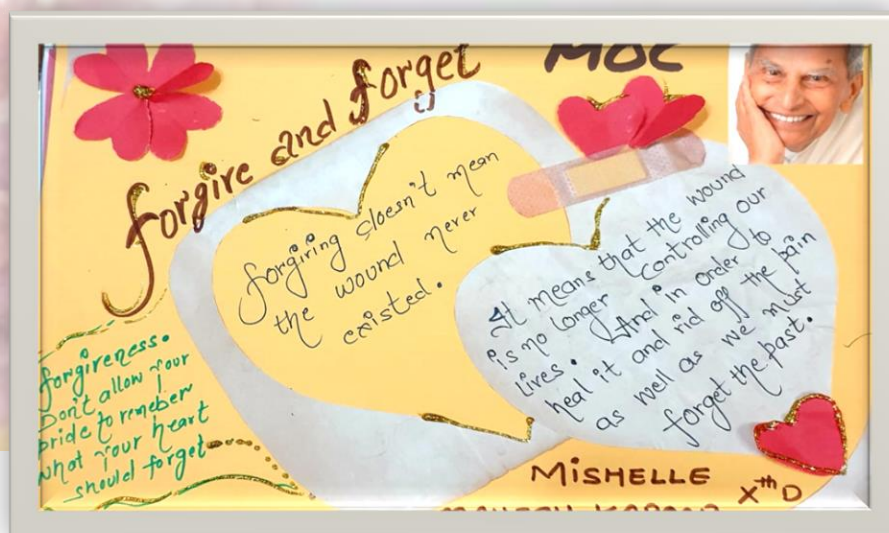 MOC
forgive and forget
forgiving doesn't mean
the wound never
existed.
It means that the wound
is no longer controlling our
lives. And in order to
heal it and rid off the pain
as well as we must
forget the past.
forgiveness.
Don't allow your
pride to remeber
what your heart
should forget
MiSHELLE
Xth D